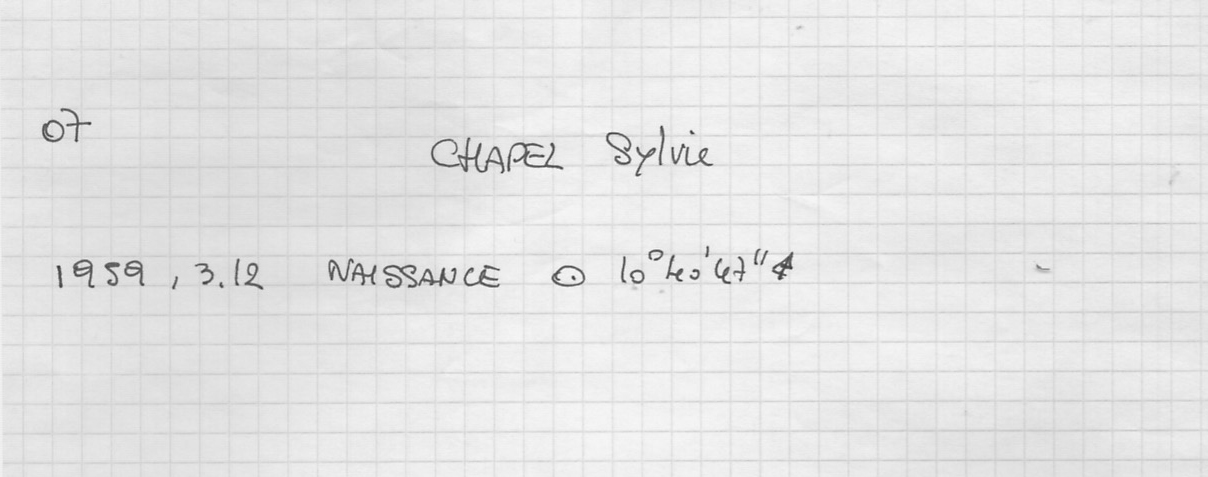 07
CHAPEL Sylvie
1959, 3.12 NAISSANCE ☉ 10°40'47" ♐